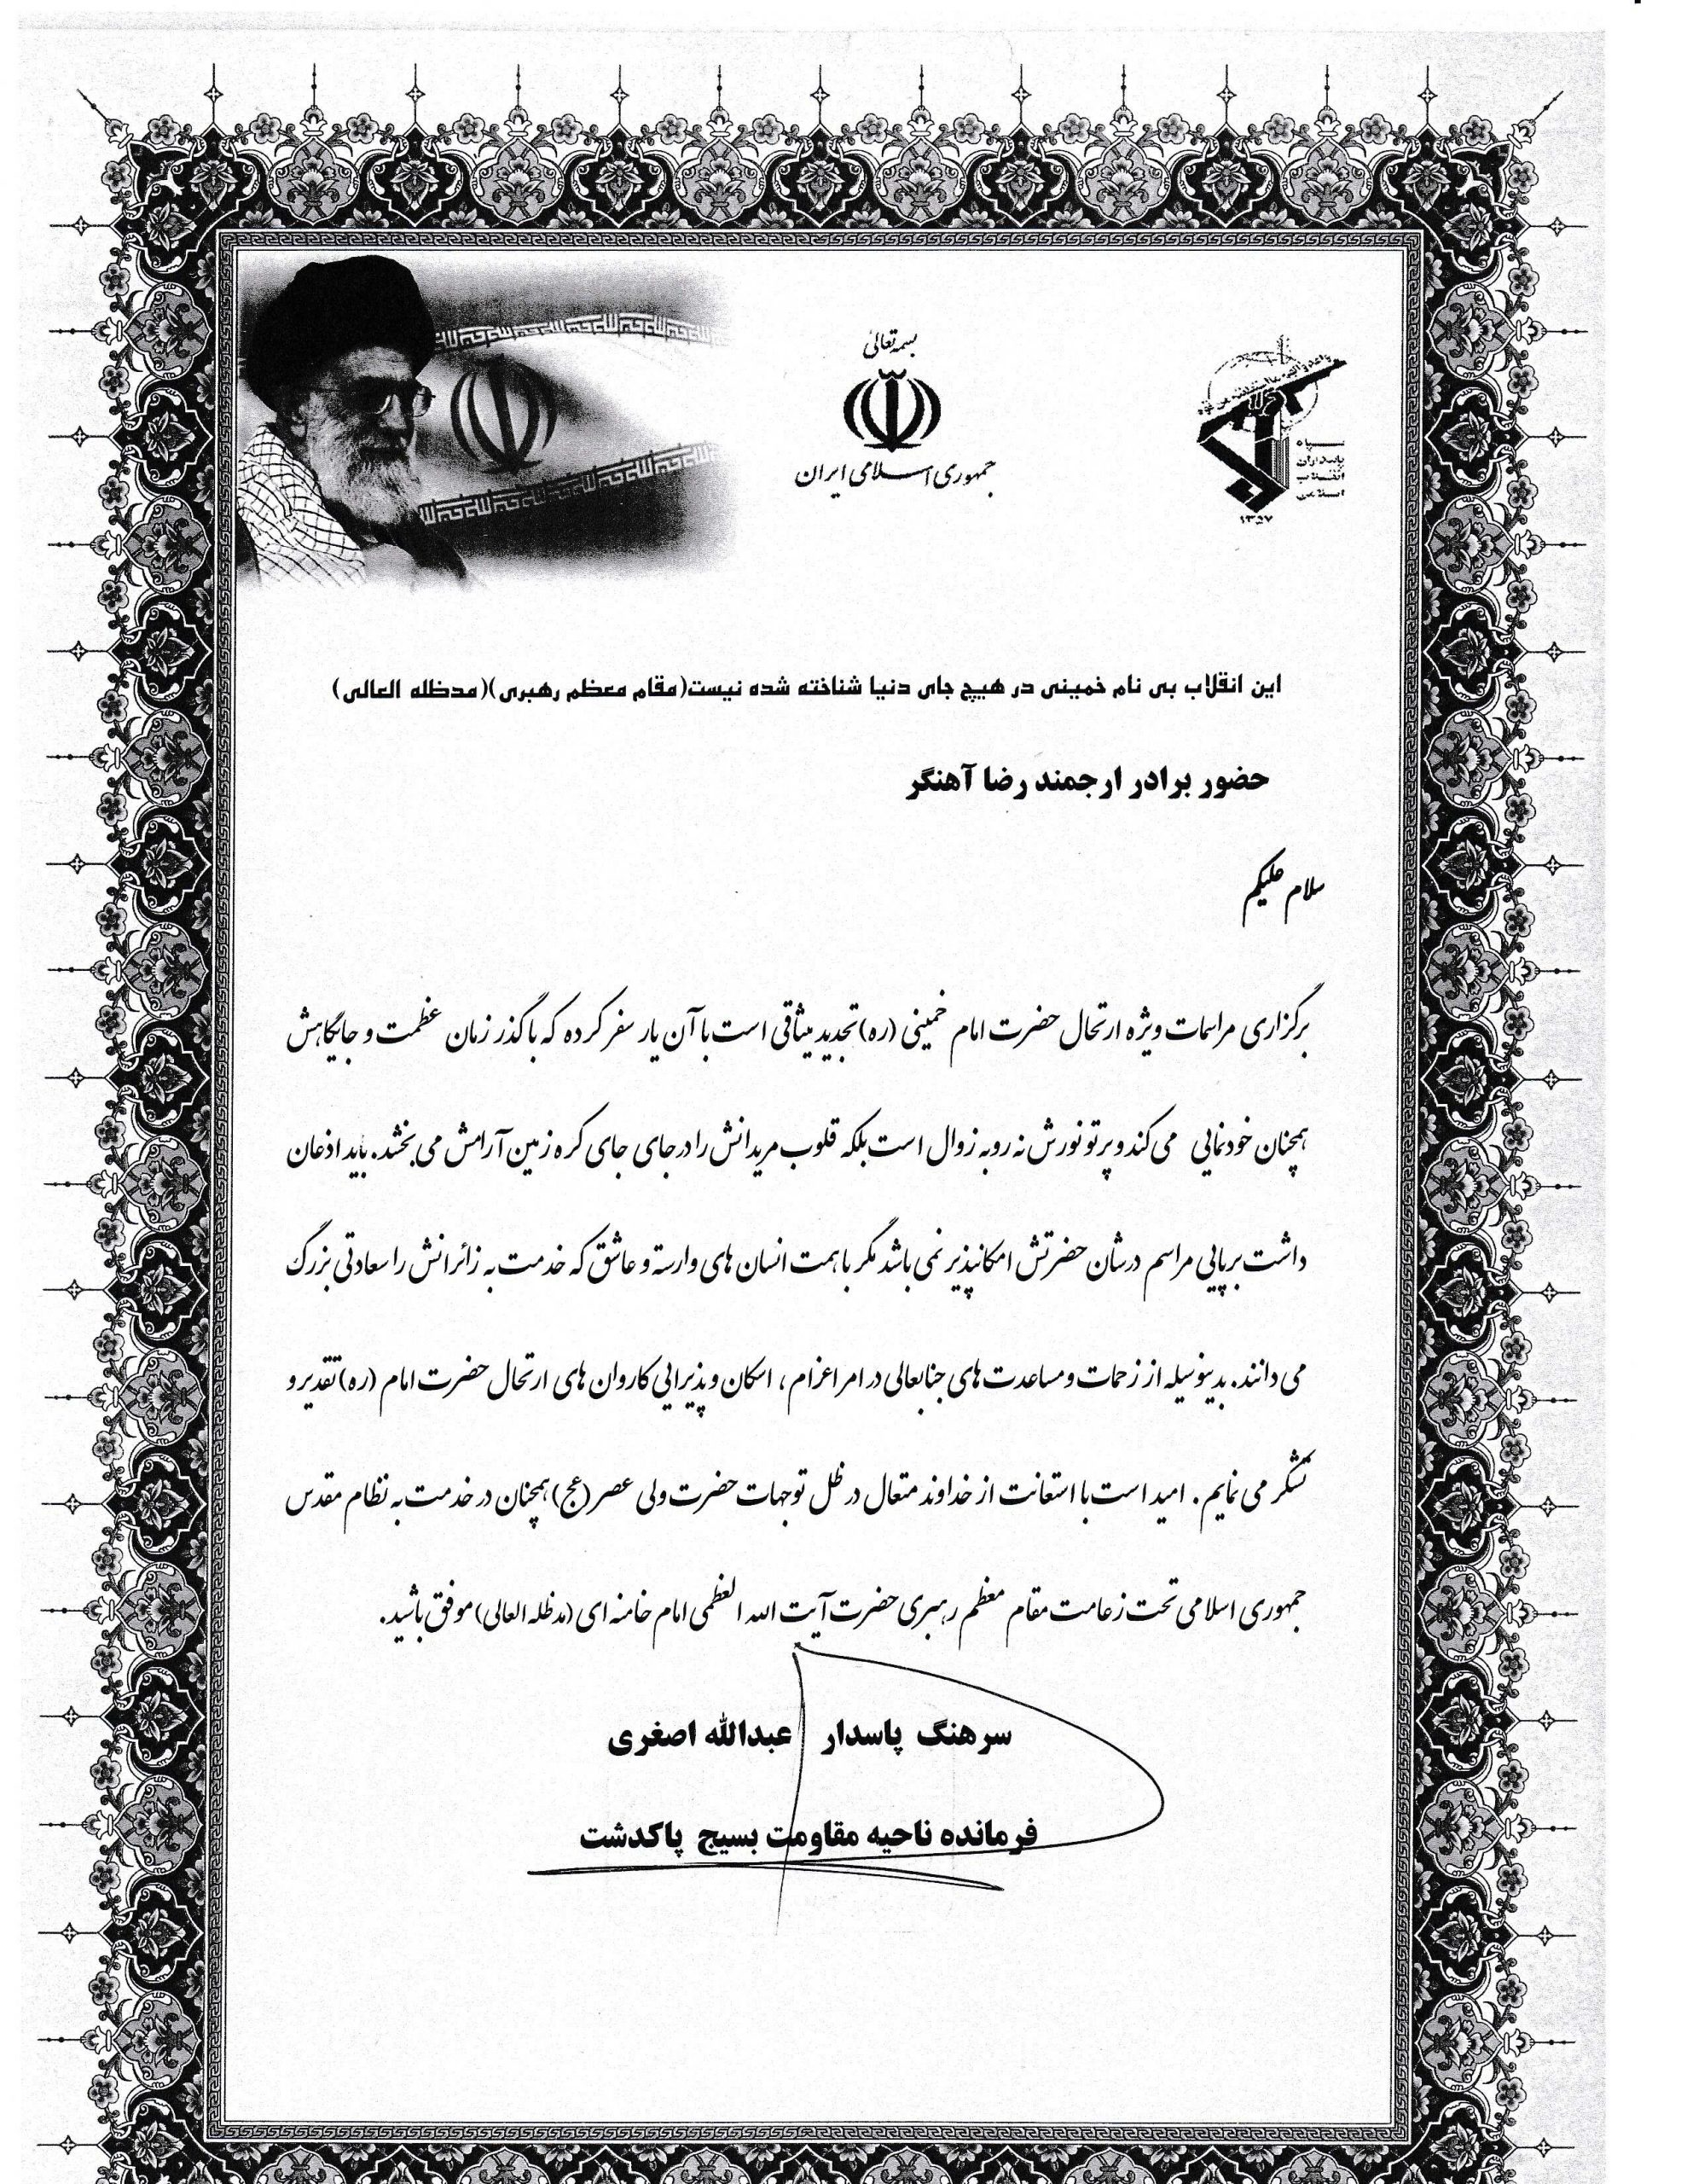 بسمه تعالی
جمهوری اسلامی ایران
سپاه
پاسداران
انقلاب
اسلامی
۱۳۵۷
این انقلاب بی نام خمینی در هیچ جای دنیا شناخته شده نیست(مقام معظم رهبری)(مدظله العالی)
حضور برادر ارجمند رضا آهنگر
سلام علیکم
برگزاری مراسمات ویژه ارتحال حضرت امام خمینی (ره)تجدید میثاقی است با آن یار سفر کرده که با گذر زمان عظمت و جایگاهش
همچنان خودنمایی می کند و پرتو نورش نه رو به زوال است بلکه قلوب مریدانش را در جای جای کره زمین آرامش می بخشد. باید اذعان
داشت برپایی مراسم درشان حضرتش امکانپذیر نمی باشد مگر با همت انسان های وارسته و عاشق که خدمت به زائرانش را سعادتی بزرگ
می دانند. بدینوسیله از زحمات و مساعدت های جنابعالی در امر اعزام ، اسکان و پذیرایی کاروان های ارتحال حضرت امام (ره) تقدیر و
تشکر می نمایم . امید است با استعانت از خداوند متعال در ظل توجهات حضرت ولی عصر (عج) همچنان در خدمت به نظام مقدس
جمهوری اسلامی تحت زعامت مقام معظم رهبری حضرت آیت الله العظمی امام خامنه ای (مدظله العالی) موفق باشید.
سرهنگ پاسدار عبدالله اصغری
فرمانده ناحیه مقاومت بسیج پاکدشت